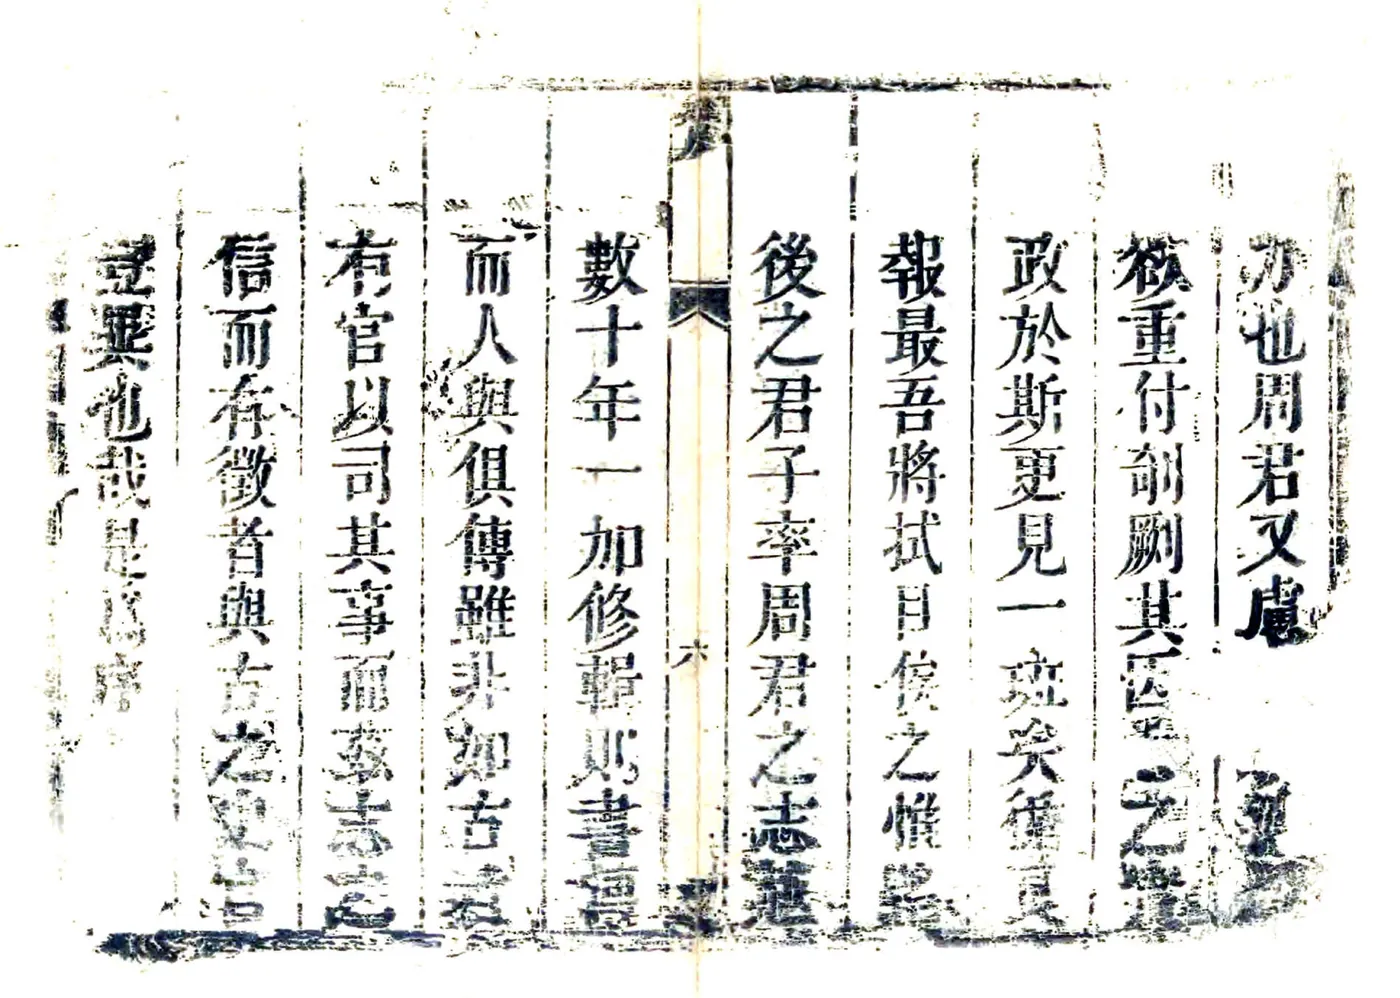 力也周君又慮
欲重付剞劂其匹之
政於斯更見一斑矣
報最吾將拭目俟之惟
後之君子率周君之志
六
數十年一加修輯則書
而人與俱傳雖非如古
有官以司其事而
信而有徵者與古之
豈異也哉是為序